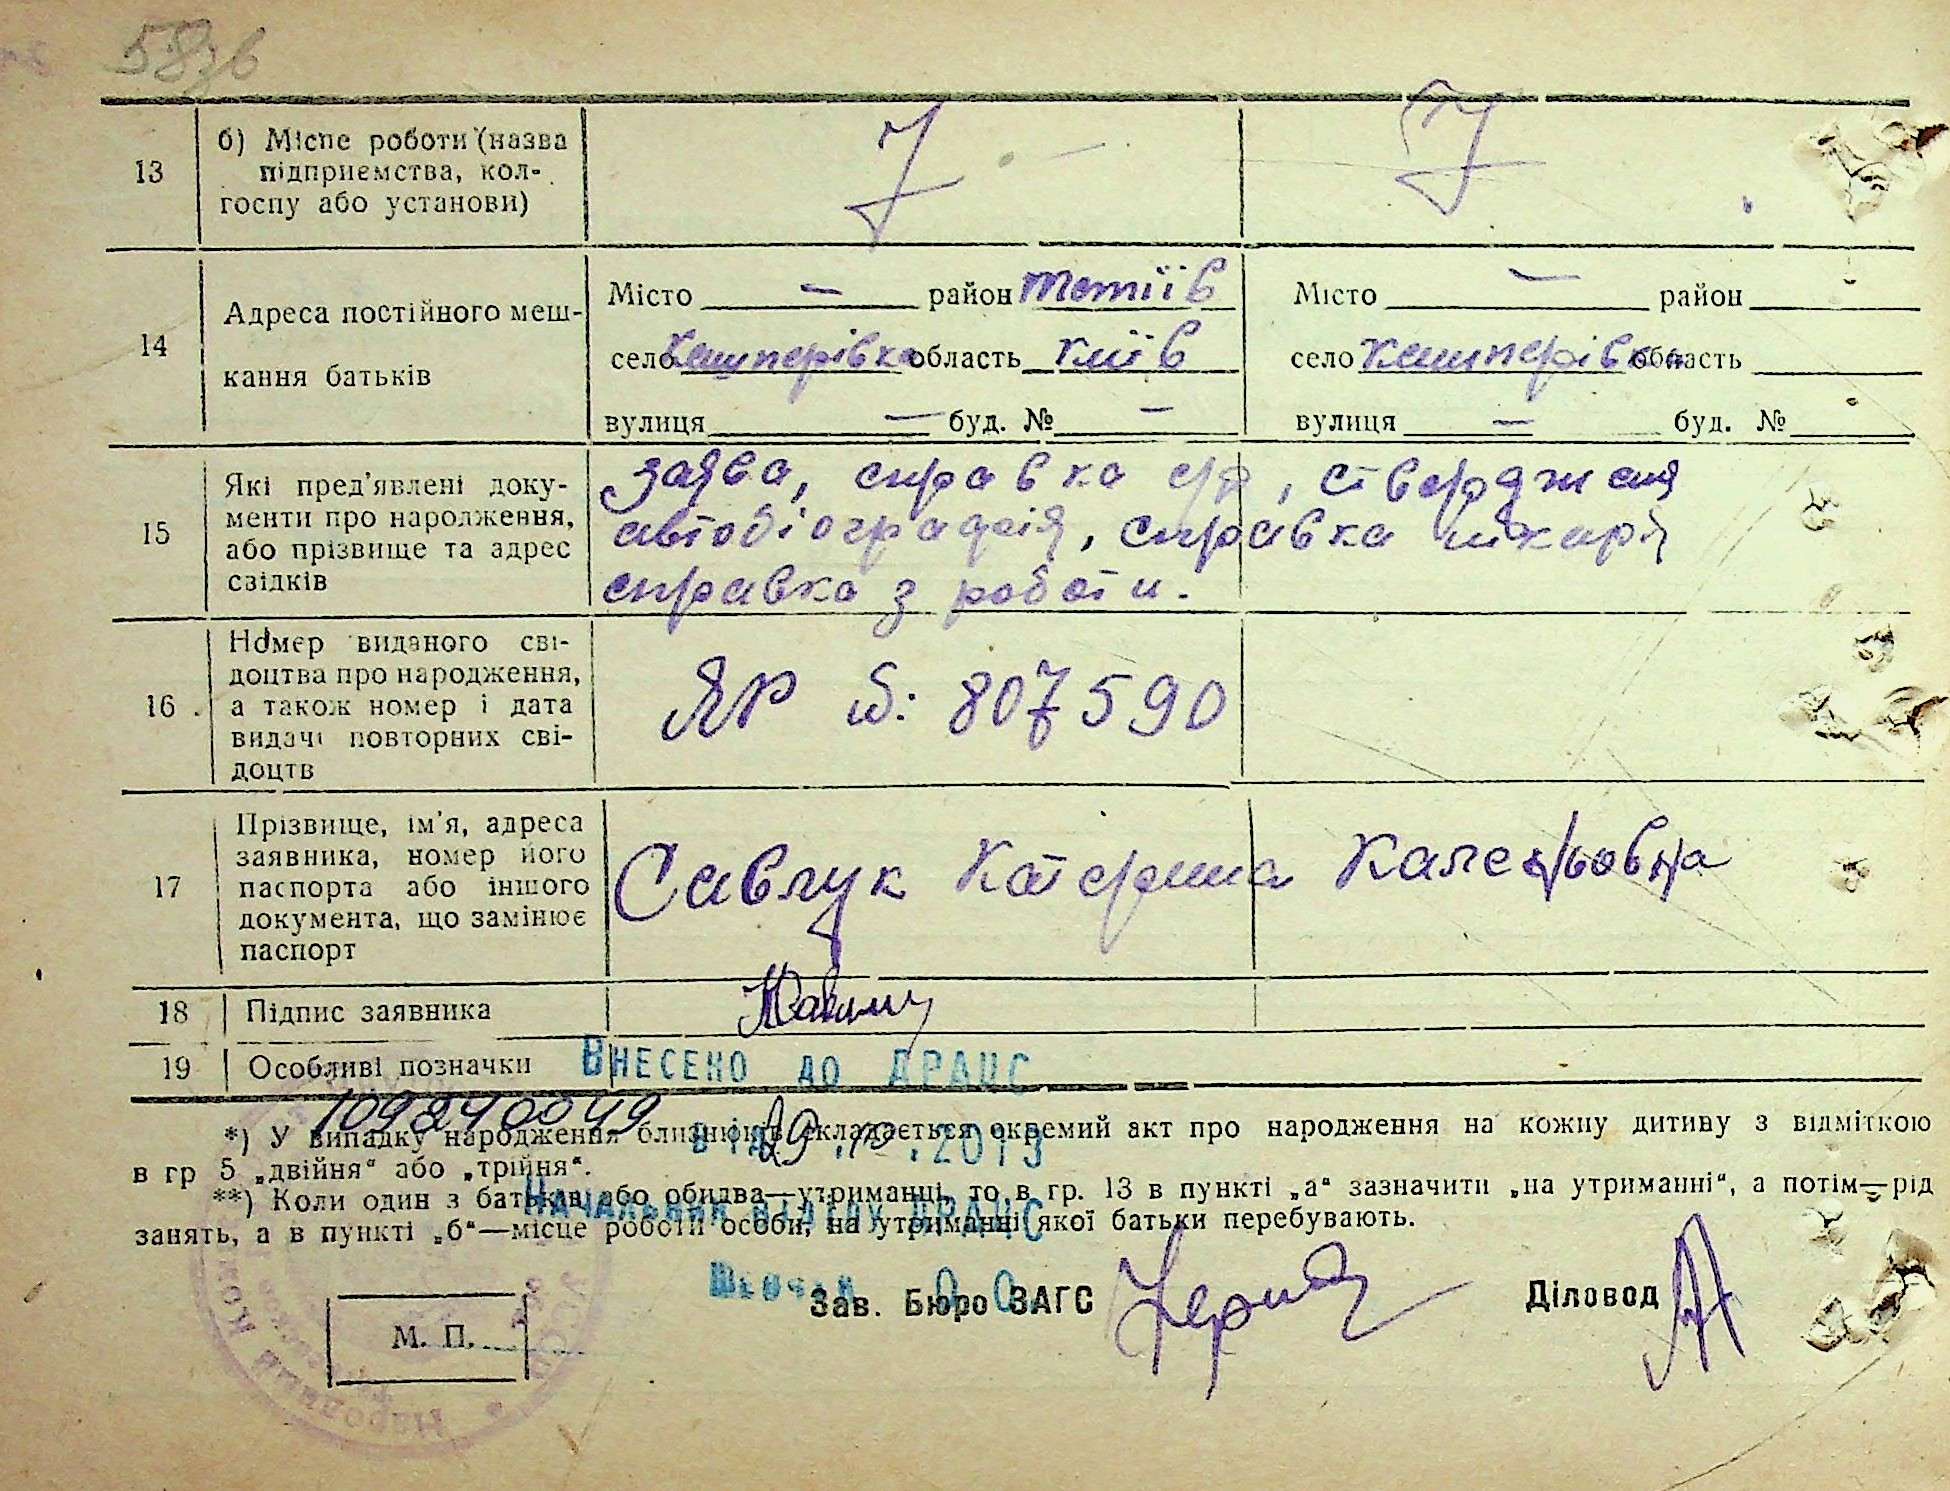 58зв
13 б) Місце роботи (назва підприємства, колгоспу або установи) 7 7
14 Адреса постійного мешкання батьків
Місто — район Тетіїв Місто — район
село Кашперівка область Київ село Кашперівка область
вулиця — буд. № — вулиця — буд. №
15 Які пред'явлені документи про народження, або прізвище та адрес свідків
заява, справка с/р, ствердженя
автобіографія, справка лікаря
справка з роботи.
16 Номер виданого свідоцтва про народження, а також номер і дата видачі повторних свідоцтв
ЯР 807590
17 Прізвище, ім'я, адреса заявника, номер його паспорта або іншого документа, що замінює паспорт
Савлук Катерина
18 Підпис заявника
19 Особливі позначки ВНЕСЕНО ДО ДРАЦС
*) У випадку народження близнюків складається окремий акт про народження на кожну дитину з відміткою
в гр 5 „двійня“ або „трійня“.
**) Коли один з батьків або обидва—утриманці, то в гр. 13 в пункті „а“ зазначити „на утриманні“, а потім—рід
занять, а в пункті „б“—місце роботи особи, на утриманні якої батьки перебувають.
НАЧАЛЬНИК ВІДДІЛУ ДРАЦС
Зав. Бюро ЗАГС Діловод
М. П.